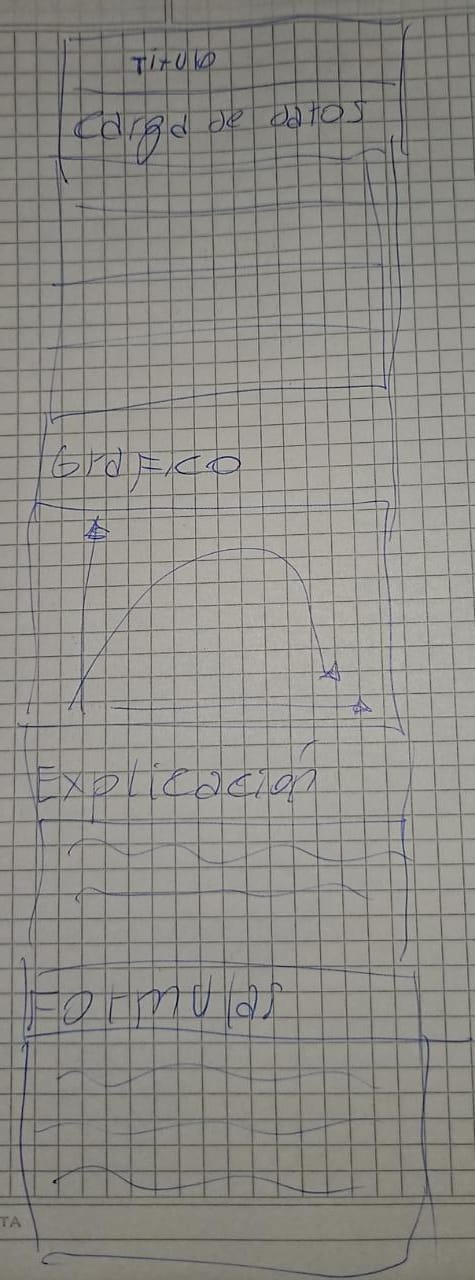 Titulo
Carga de datos
Grafico
Explicación
Formulas
TA